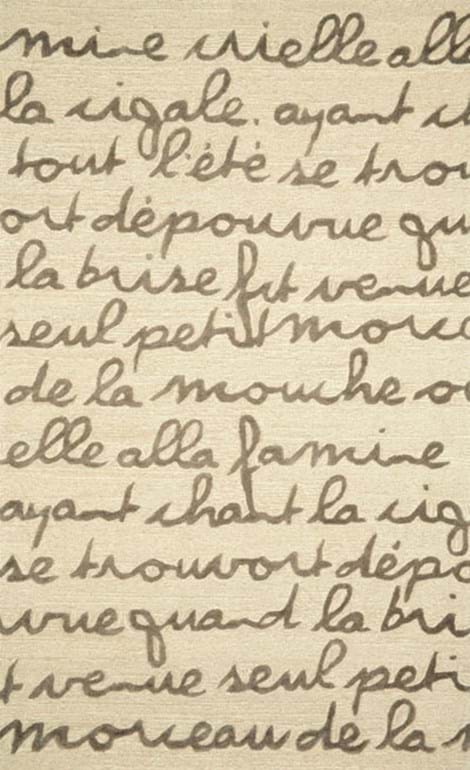 mine crielle alle
la cigale. ayant ch
tout l'été se trou
ort dépourvue qu
la brise fut venue
seul petit morce
de la mouche ou
elle alla famine
ayant chant la cig
se trouvort dépo
urvue quand la bri
t venue seul peti
morceau de la m